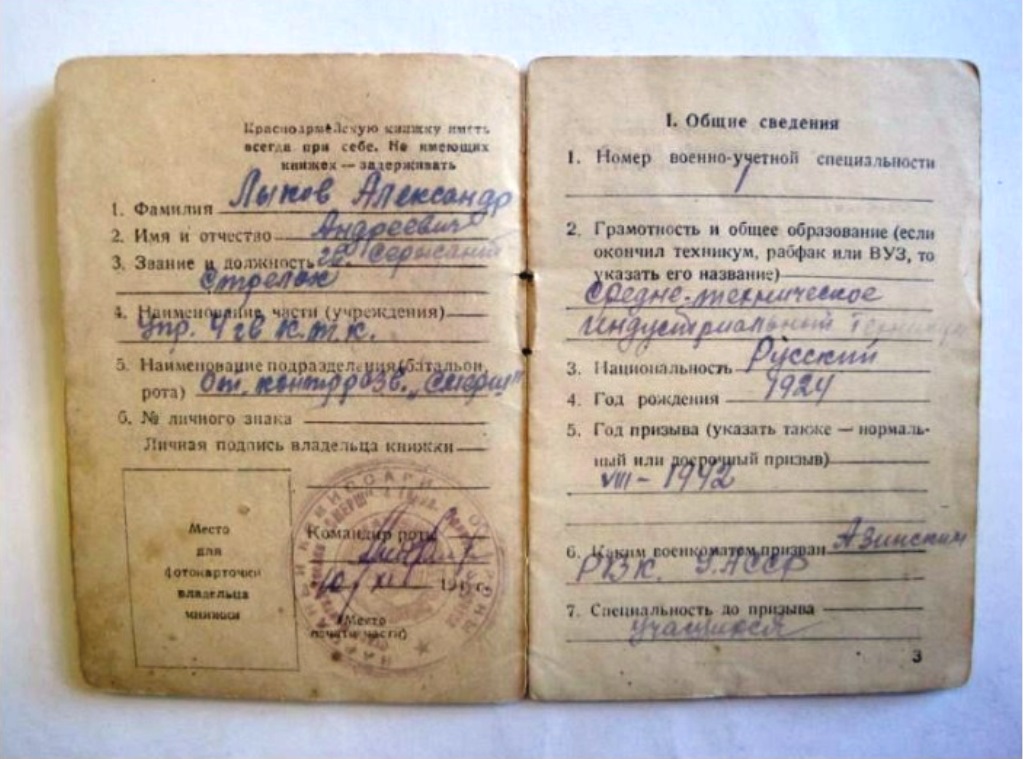 Красноармейскую книжку иметь
всегда при себе. Не имеющих
книжек — задерживать
1. Фамилия Лыков Александр
2. Имя и отчество Андреевич
3. Звание и должность гв. сержант
стрелок
4. Наименование части (учреждения)
Упр. 4 гв к.т.к.
5. Наименование подразделения (батальон,
рота) От. контрразв. „Смерш"
6. № личного знака
Личная подпись владельца книжки
Место
для
фотокарточки
владельца
книжки
Командир роты
10/XII 194 г.
(Место
печати части)
I. Общие сведения
1. Номер военно-учетной специальности
1
2. Грамотность и общее образование (если
окончил техникум, рабфак или ВУЗ, то
указать его название)
Средне-техническое
Индустриальный техникум
3. Национальность Русский
4. Год рождения 1924
5. Год призыва (указать также — нормаль-
ный или досрочный призыв)
VIII - 1942
6. Каким военкоматом призван Азинским
РВК. УАССР
7. Специальность до призыва
учащийся
3